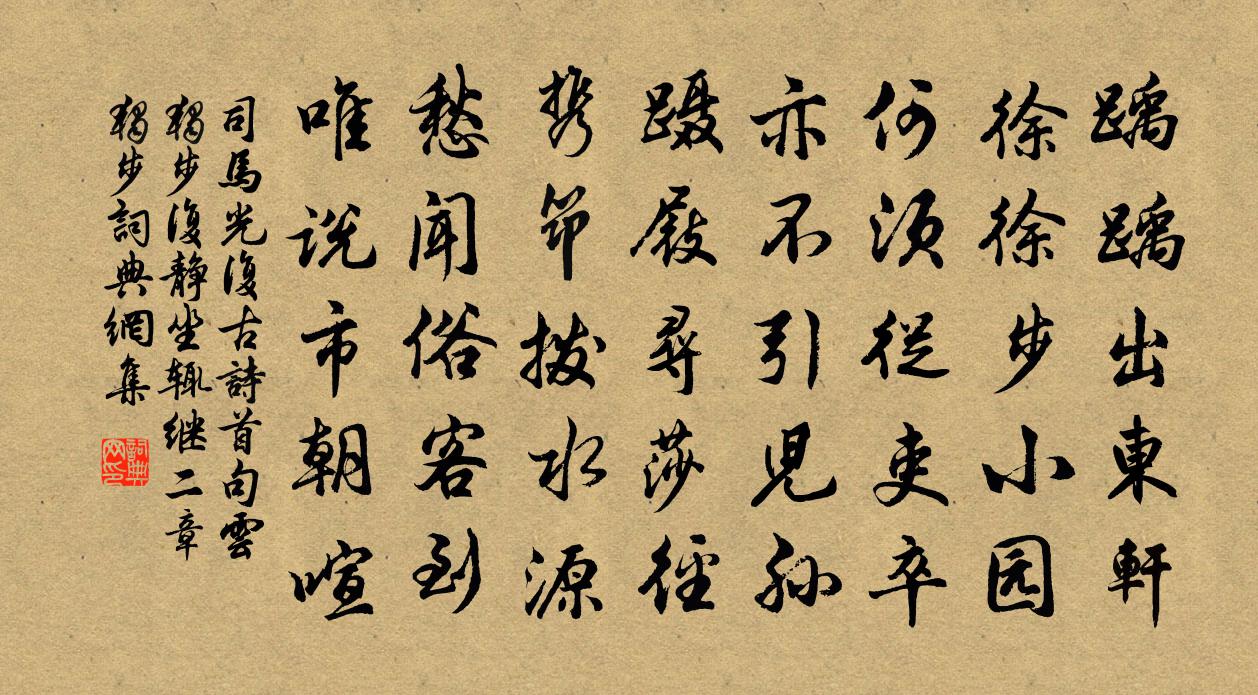 踽踽出東軒
徐徐步小园
何須從吏卒
亦不引兒孙
蹑屐尋莎徑
携筇拨水源
愁聞俗客到
唯说市朝喧
司馬光復古詩首句雲
獨步復静坐辄继二章
獨步詞典網集
詞典网印